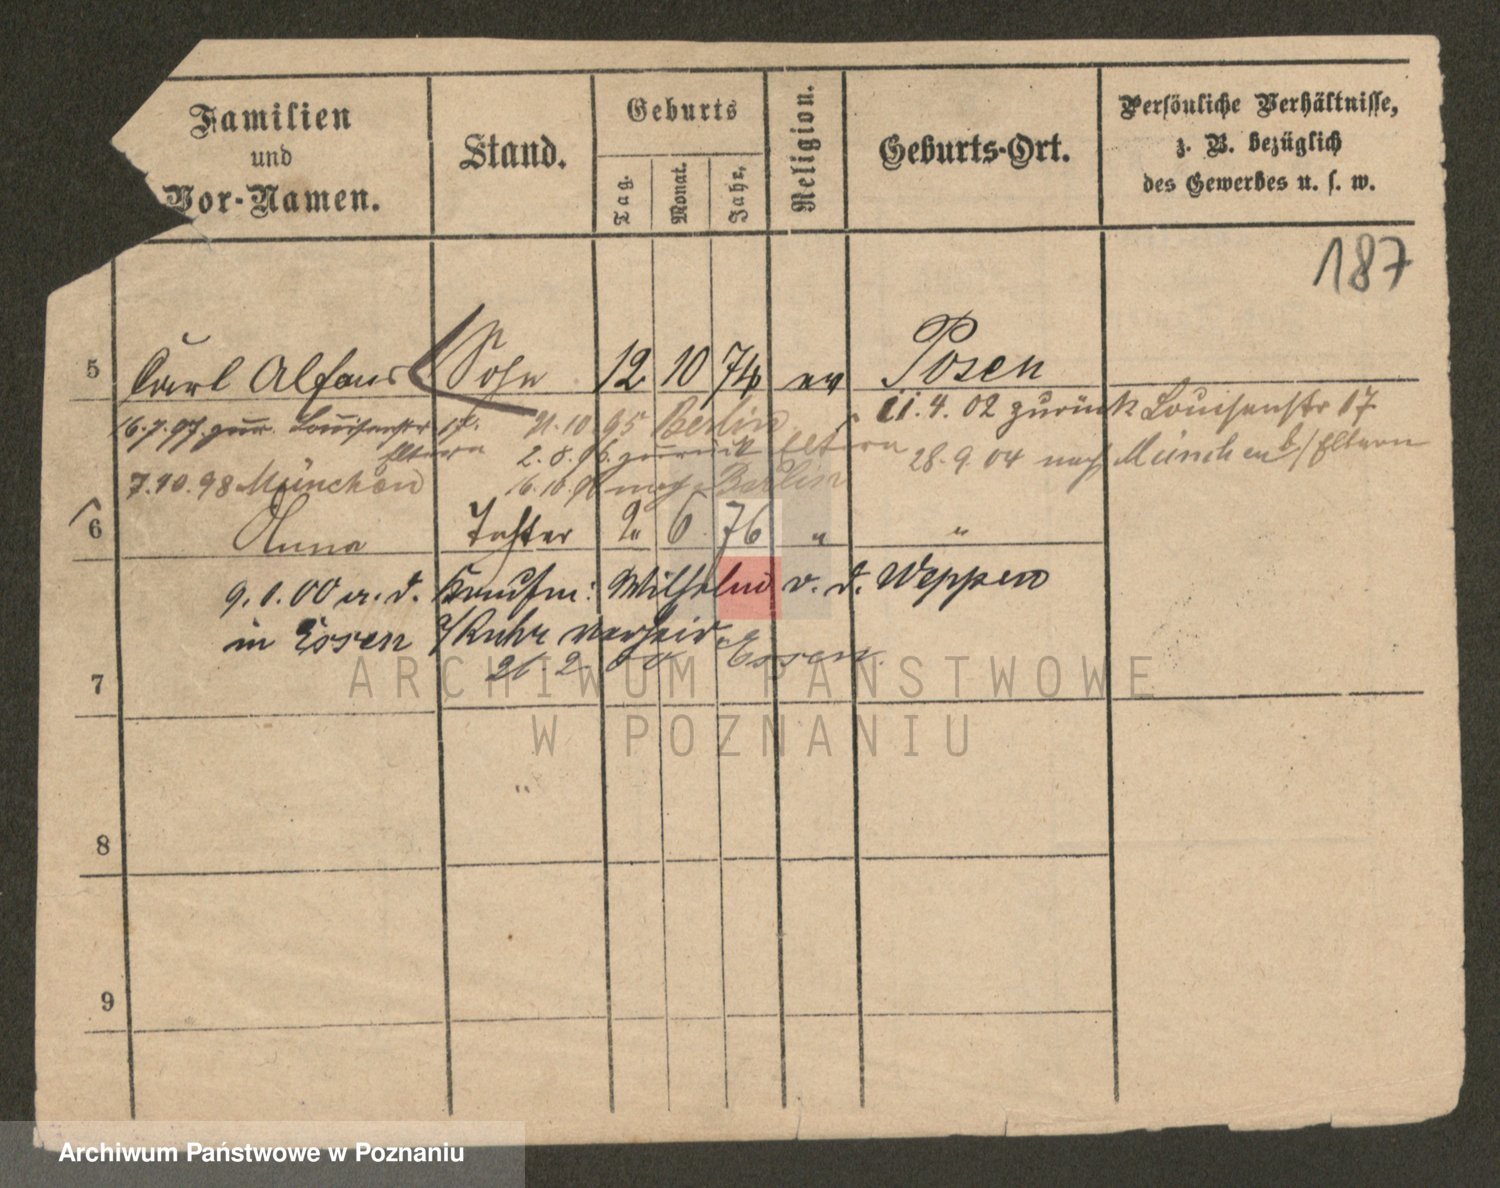 Familien
und
Vor-Namen.
Stand.
Geburts
Tag.
Monat.
Jahr,
Religion.
Geburts-Ort.
Persönliche Verhältnisse,
z. B. bezüglich
des Gewerbes u. s. w.
187
5 Carl Alfons Sohn 12 10 74 ev Posen
16.7.97 zur. Louisenstr 17. 21.10.95 Berlin 11.4.02 zurück Louisenstr 17
Eltern 2.8.96 zurück Eltern 28.9.04 nach München b/ Eltern
7.10.98 München 16.10.96 nach Berlin
6 Anna Tochter 2 6 76 " "
9.1.00 a. d. Kaufm: Wilhelm v. d. Weppen
in Essen a/Ruhr verheir.
21.2.00 Essen.
7
8
9
ARCHIWUM PAŃSTWOWE
W POZNANIU
Archiwum Państwowe w Poznaniu